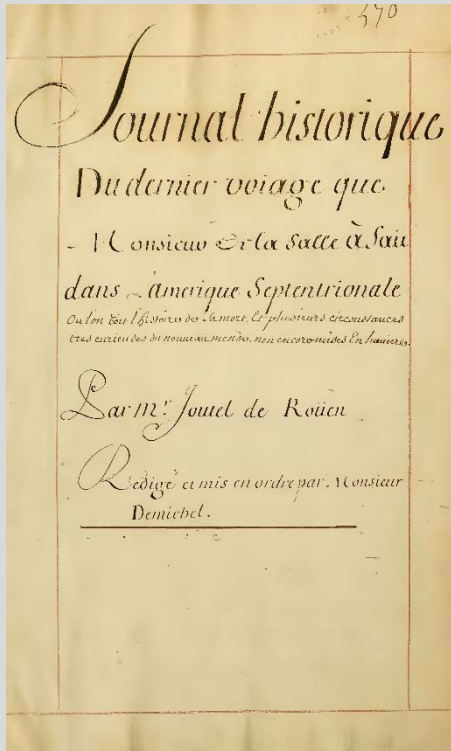 570
Journal historique
Du dernier voiage que
Monsieur De la Salle à fait
dans L'amerique Septentrionale
Ou l'on voit l'histoire de sa mort, Et plusieurs circonstances
tres curieuses du nouveau monde, non encore mises En lumiere.
Par mr. Joutel de Roüen
Redigé et mis en ordre par Monsieur
Demichel.